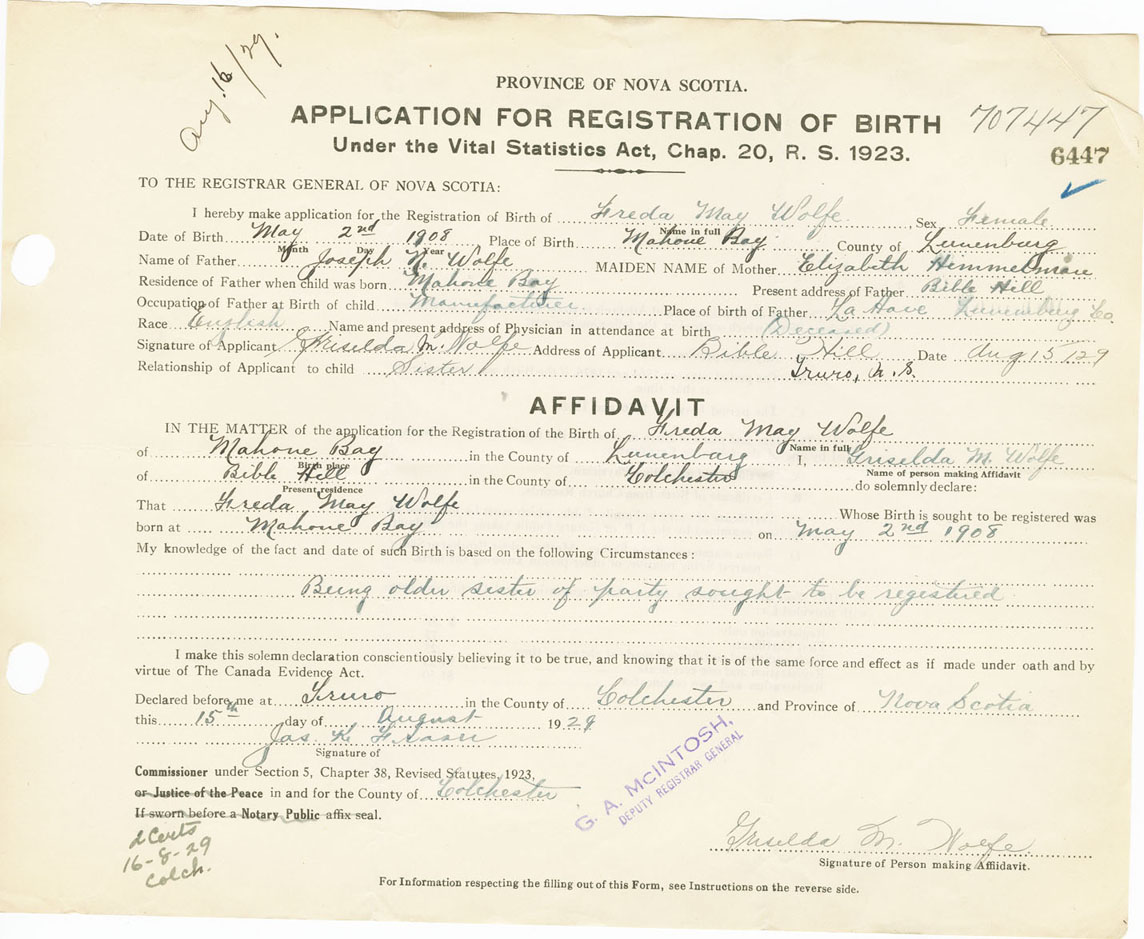 Aug. 16/29.
PROVINCE OF NOVA SCOTIA.
APPLICATION FOR REGISTRATION OF BIRTH
707447
Under the Vital Statistics Act, Chap. 20, R. S. 1923.
6447
TO THE REGISTRAR GENERAL OF NOVA SCOTIA:
I hereby make application for the Registration of Birth of Freda May Wolfe Sex Female
Name in full
Date of Birth May 2nd 1908 Place of Birth Mahone Bay County of Lunenburg
Month Day Year
Name of Father Joseph N. Wolfe MAIDEN NAME of Mother Elizabeth Himmelman
Residence of Father when child was born Mahone Bay Present address of Father Bible Hill
Occupation of Father at Birth of child Manufacturer Place of birth of Father La Have Lunenburg Co.
Race English Name and present address of Physician in attendance at birth (Deceased)
Signature of Applicant Griselda M. Wolfe Address of Applicant Bible Hill Date Aug 15/29
Relationship of Applicant to child Sister Truro, N. S.
AFFIDAVIT
IN THE MATTER of the application for the Registration of the Birth of Freda May Wolfe
Name in full
of Mahone Bay in the County of Lunenburg I, Griselda M. Wolfe
Birth place Name of person making Affidavit
of Bible Hill in the County of Colchester do solemnly declare:
Present residence
That Freda May Wolfe Whose Birth is sought to be registered was
born at Mahone Bay on May 2nd 1908
My knowledge of the fact and date of such Birth is based on the following Circumstances:
Being older sister of party sought to be registired
I make this solemn declaration conscientiously believing it to be true, and knowing that it is of the same force and effect as if made under oath and by
virtue of The Canada Evidence Act.
Declared before me at Truro in the County of Colchester and Province of Nova Scotia
this 15th day of August 1929
Jas. K. Fraser
Signature of
G. A. McINTOSH,
DEPUTY REGISTRAR GENERAL
Commissioner under Section 5, Chapter 38, Revised Statutes, 1923,
or Justice of the Peace in and for the County of Colchester
If sworn before a Notary Public affix seal.
2 Certs
16-8-29
Colch.
Griselda M. Wolfe
Signature of Person making Affidavit.
For Information respecting the filling out of this Form, see Instructions on the reverse side.